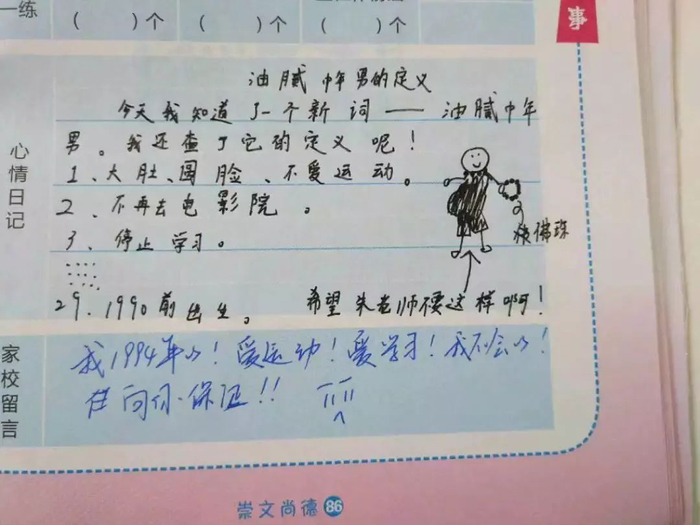 一练
( )个
( )个
( )个
事
心情日记
油腻中年男的定义
今天我知道了一个新词——油腻中年
男。我还查了它的定义呢！
1、大肚、圆脸、不爱运动。
2、不再去电影院。
3、停止学习。
29、1990前出生。 希望朱老师不要这样啊！
家校留言
我1994年的！爱运动！爱学习！我不会的！
向你保证！！
崇文尚德 86